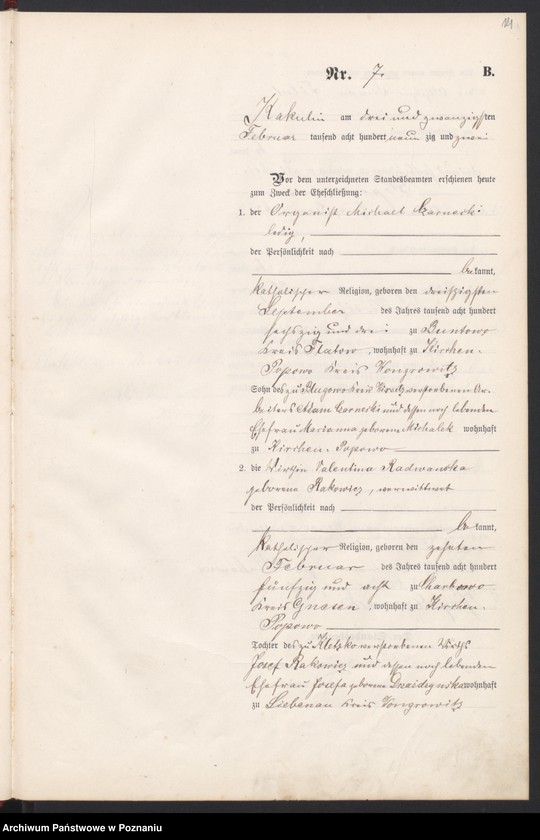 14
Nr. 7. B.
Kakulin am drei und zwanzigsten
Februar tausend acht hundert neun zig und zwei
Vor dem unterzeichneten Standesbeamten erschienen heute
zum Zweck der Eheschließung:
1. der Organist Michael Czarnecki
ledig,
der Persönlichkeit nach
be kannt,
katholischer Religion, geboren den dreißigsten
September des Jahres tausend acht hundert
sechszig und drei zu Buntowo
Kreis Flatow, wohnhaft zu Kirchen-
Popowo Kreis Wongrowitz
Sohn des zu Kreis verstorbenen Ar-
beiters Adam Czarnecki und dessen noch lebenden
Ehefrau Marianna geborene Michalek wohnhaft
zu Kirchen-Popowo
2. die Wirthin Valentina Radwanska
geborene Rakowicz, verwittwet
der Persönlichkeit nach
be kannt,
katholischer Religion, geboren den zehnten
Februar des Jahres tausend acht hundert
fünfzig und acht zu Charbowo
Kreis Gnesen, wohnhaft zu Kirchen-
Popowo
Tochter des zu Kletzko verstorbenen Wirths
Josef Rakowicz und dessen noch lebenden
Ehefrau Josefa geborene wohnhaft
zu Liebenau Kreis Wongrowitz
Archiwum Państwowe w Poznaniu